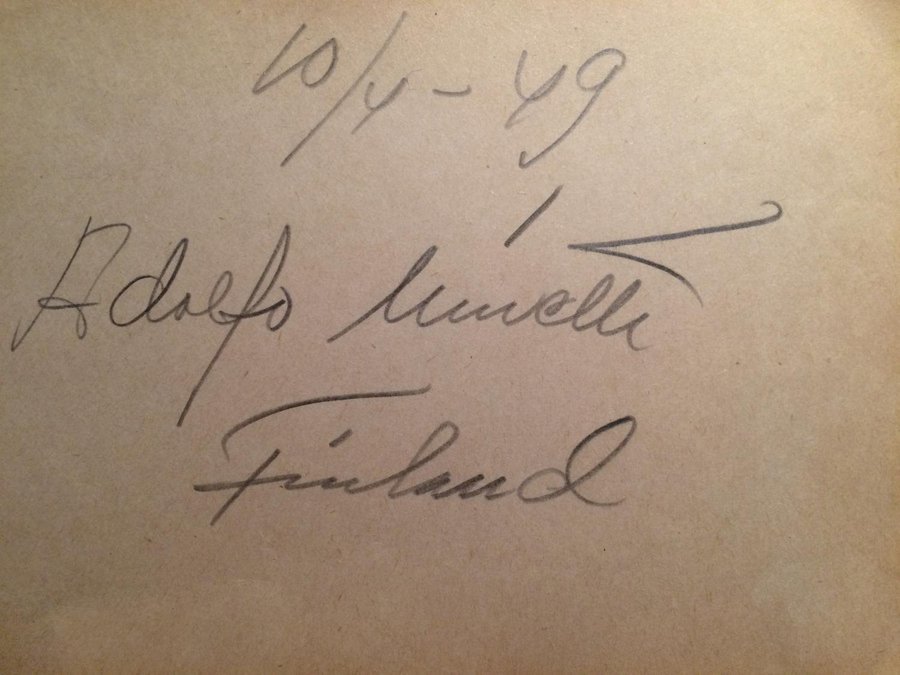 10/4 - 49
Adolfo
Finland